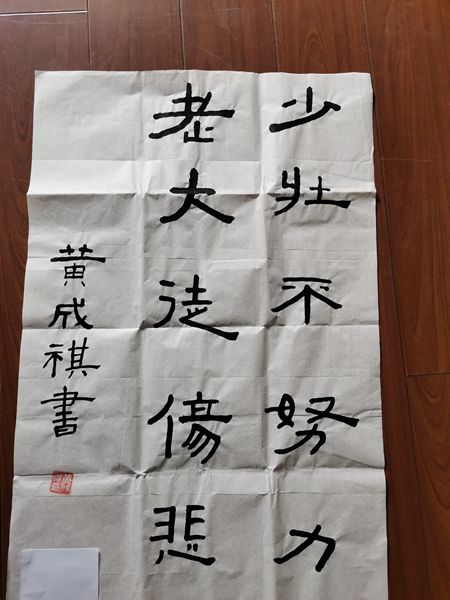 少壯不努力
老大徒傷悲
黄成祺書